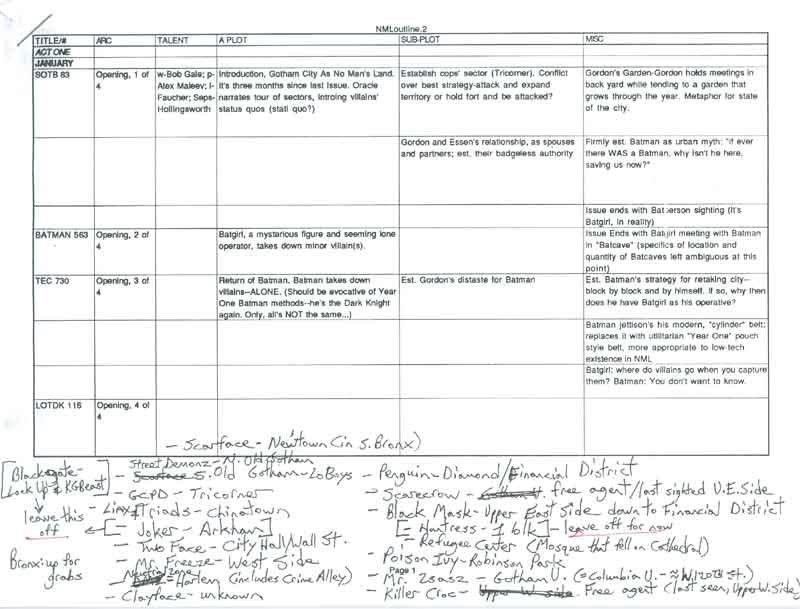 NMLoutline.2
TITLE/# ARC TALENT A PLOT SUB-PLOT MISC
ACT ONE
JANUARY
SOTB 83
Opening, 1 of
4
w-Bob Gale; p-
Alex Maleev; i-
Faucher; Seps-
Hollingsworth
Introduction, Gotham City As No Man's Land.
It's three months since last issue. Oracle
narrates tour of sectors, introing villains'
status quos (stati quo?)
Establish cops' sector (Tricorner). Conflict
over best strategy-attack and expand
territory or hold fort and be attacked?
Gordon's Garden-Gordon holds meetings in
back yard while tending to a garden that
grows through the year. Metaphor for state
of the city.
Gordon and Essen's relationship, as spouses
and partners; est. their badgeless authority
Firmly est. Batman as urban myth: "if ever
there WAS a Batman, why isn't he here,
saving us now?"
Issue ends with Batperson sighting (it's
Batgirl, in reality)
BATMAN 563
Opening, 2 of
4
Batgirl, a mysterious figure and seeming lone
operator, takes down minor villain(s).
Issue Ends with Batgirl meeting with Batman
in "Batcave" (specifics of location and
quantity of Batcaves left ambiguous at this
point)
TEC 730
Opening, 3 of
4
Return of Batman. Batman takes down
villains--ALONE. (Should be evocative of Year
One Batman methods--he's the Dark Knight
again. Only, all's NOT the same...)
Est. Gordon's distaste for Batman
Est. Batman's strategy for retaking city--
block by block and by himself. If so, why then
does he have Batgirl as his operative?
Batman jettison's his modern, "cylinder" belt;
replaces it with utilitarian "Year One" pouch
style belt, more appropriate to low-tech
existence in NML
Batgirl: where do villains go when you capture
them? Batman: You don't want to know.
LOTDK 116
Opening, 4 of
4
- Scarface - Newtown (in S. Bronx)
Street Demonz - N. Old Gotham
- Scarface S. Old Gotham - LoBoys
- GCPD - Tricorner
- Linx & Triads - Chinatown
[- Joker - Arkham]
- Two Face - City Hall/Wall St.
- Mr. Freeze - West Side
Neutral Zone
- Harlem (includes Crime Alley)
- Clayface - unknown
[Blackgate -
Lock Up & KGBeast]
leave this
off
Bronx: up for
grabs
- Penguin - Diamond/Financial District
- Scarecrow - free agent/last sighted U.E. Side
- Black Mask - Upper East Side down to Financial District
[- Huntress - 1 blk] - leave off for now
- Refugee Center (Mosque that fell on Cathedral)
- Poison Ivy - Robinson Park
Page 1
- Mr. Zsasz - Gotham U. (= Columbia U. - ≈ W. 120th St.)
- Killer Croc - Upper W. side Free agent (last seen, Upper W. Side)